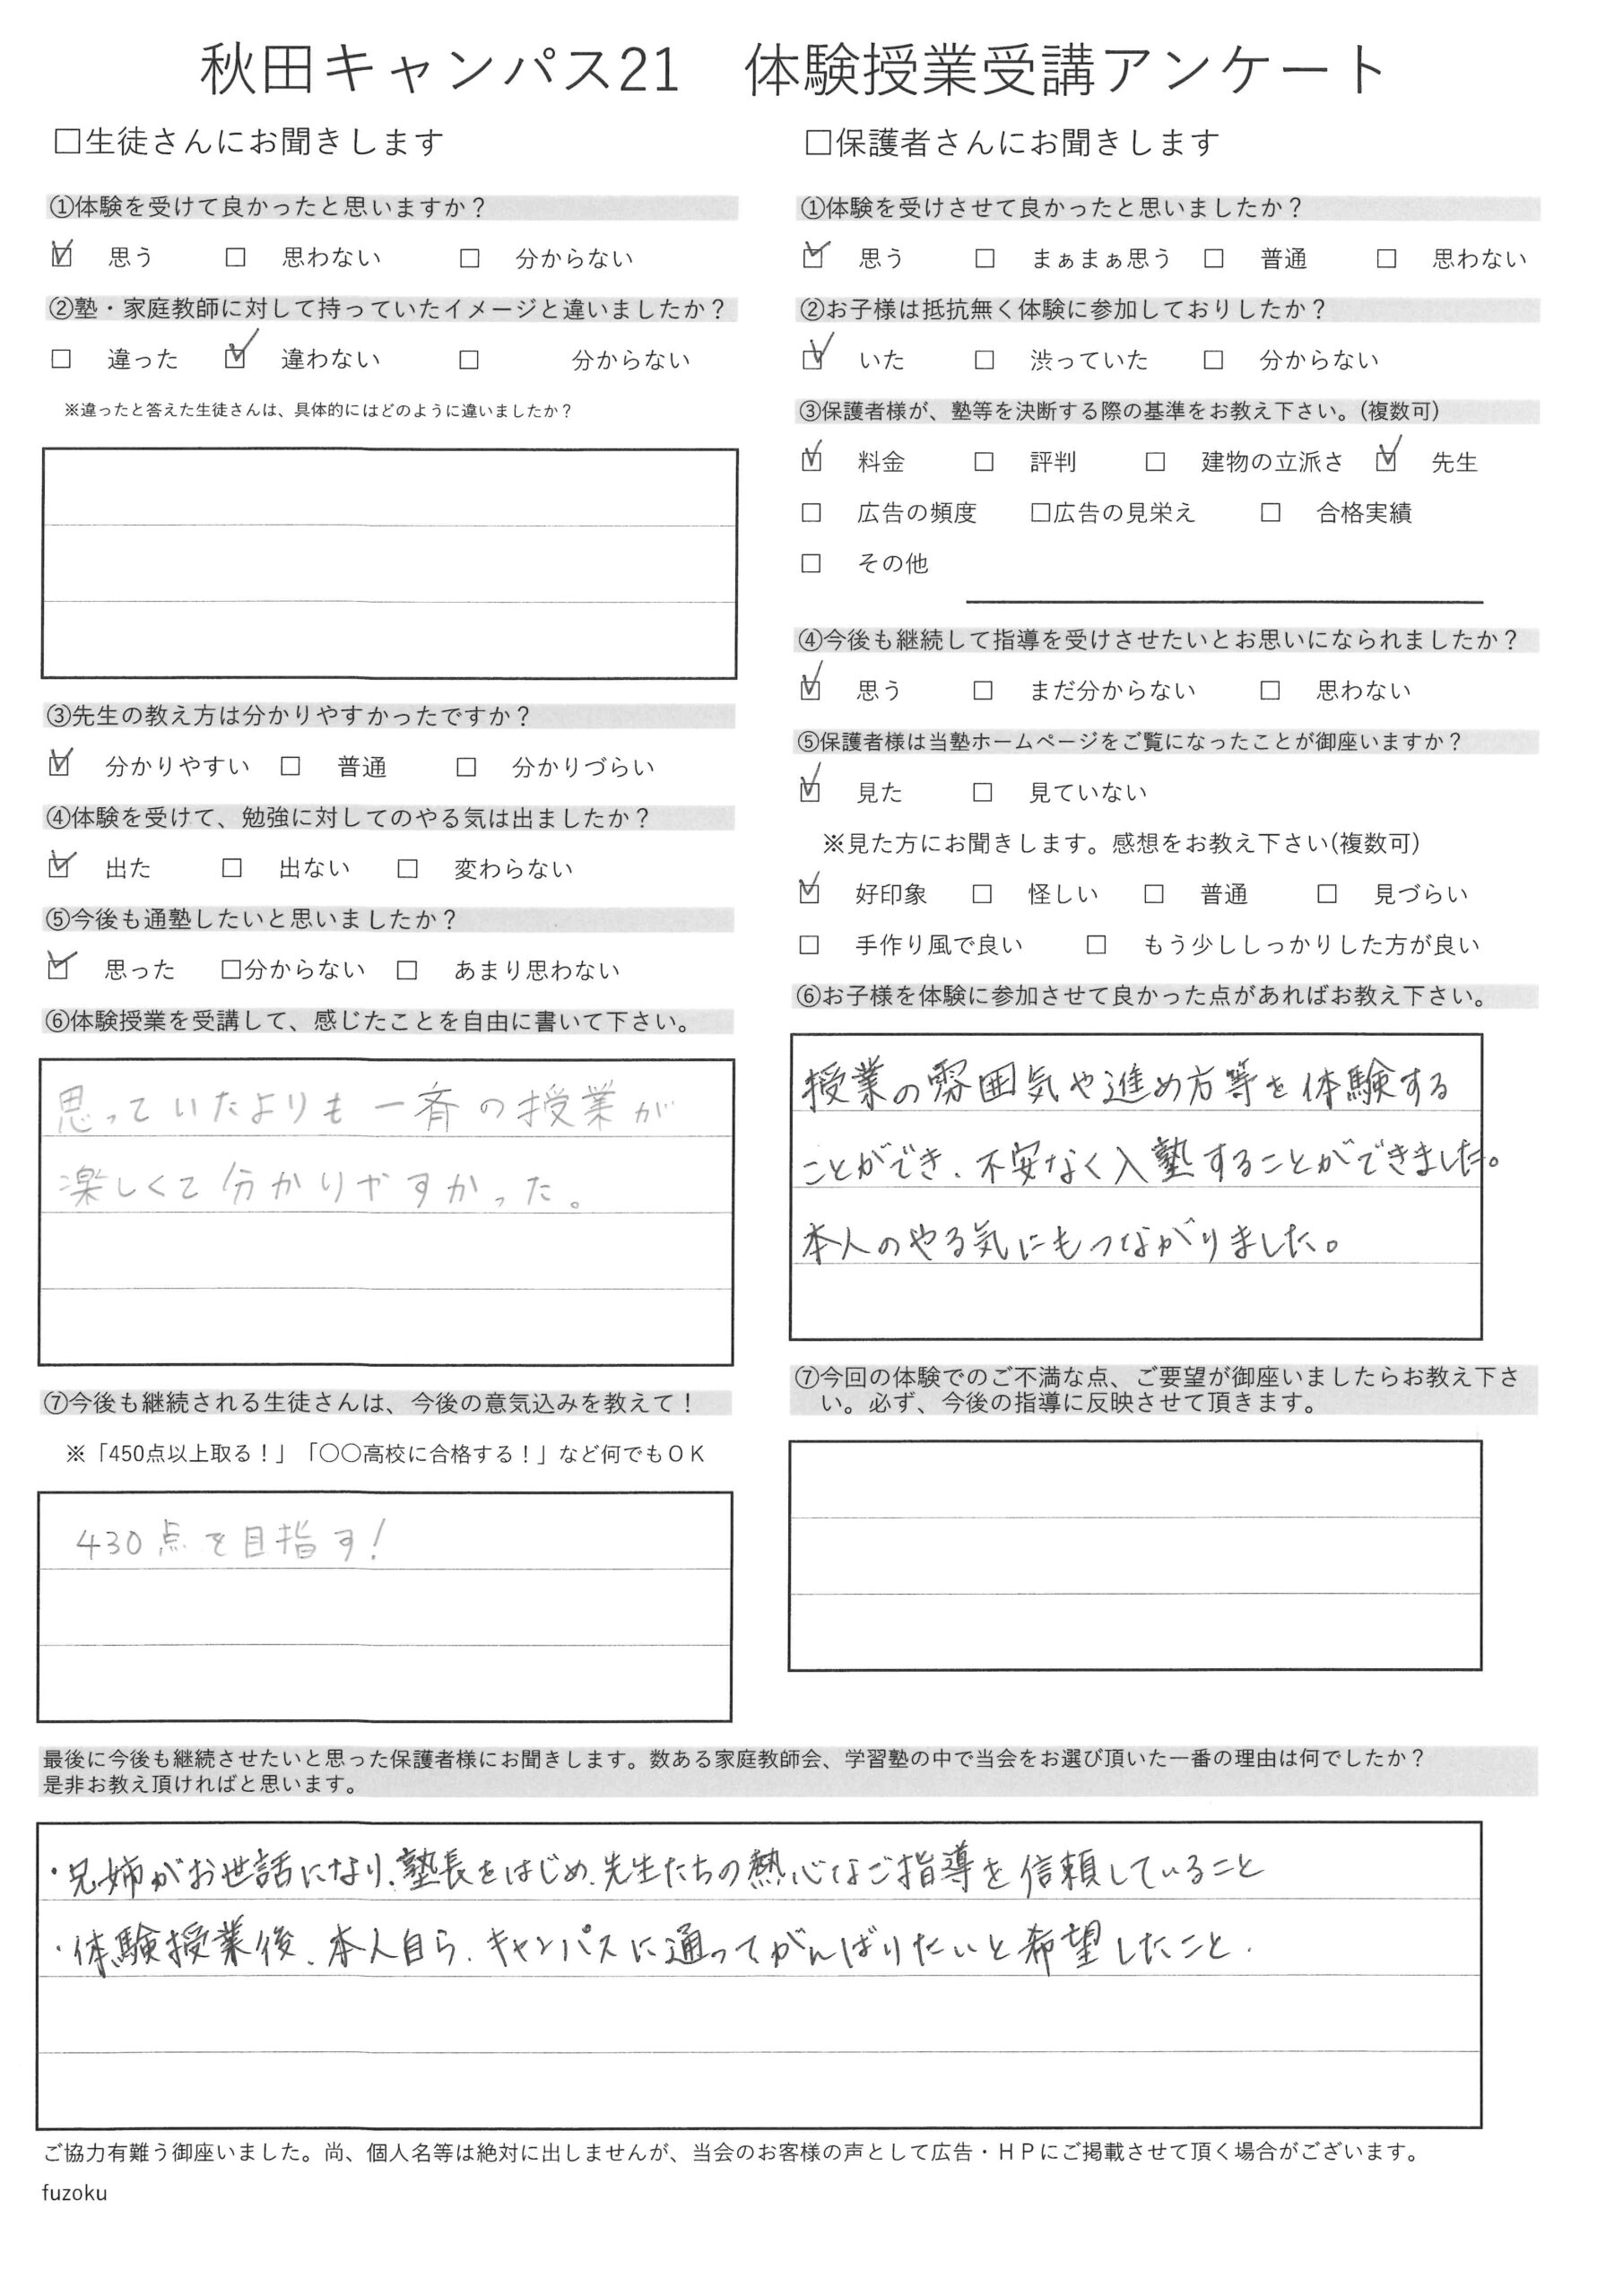 秋田キャンパス21　体験授業受講アンケート
□生徒さんにお聞きします
①体験を受けて良かったと思いますか？
☑ 思う □ 思わない □ 分からない
②塾・家庭教師に対して持っていたイメージと違いましたか？
□ 違った ☑ 違わない □ 分からない
※違ったと答えた生徒さんは、具体的にはどのように違いましたか？
③先生の教え方は分かりやすかったですか？
☑ 分かりやすい □ 普通 □ 分かりづらい
④体験を受けて、勉強に対してのやる気は出ましたか？
☑ 出た □ 出ない □ 変わらない
⑤今後も通塾したいと思いましたか？
☑ 思った □分からない □ あまり思わない
⑥体験授業を受講して、感じたことを自由に書いて下さい。
思っていたよりも一斉の授業が
楽しくて分かりやすかった。
⑦今後も継続される生徒さんは、今後の意気込みを教えて！
※「450点以上取る！」「〇〇高校に合格する！」など何でもＯＫ
430点を目指す！
□保護者さんにお聞きします
①体験を受けさせて良かったと思いましたか？
☑ 思う □ まぁまぁ思う □ 普通 □ 思わない
②お子様は抵抗無く体験に参加しておりしたか？
☑ いた □ 渋っていた □ 分からない
③保護者様が、塾等を決断する際の基準をお教え下さい。(複数可)
☑ 料金 □ 評判 □ 建物の立派さ ☑ 先生
□ 広告の頻度 □広告の見栄え □ 合格実績
□ その他
④今後も継続して指導を受けさせたいとお思いになられましたか？
☑ 思う □ まだ分からない □ 思わない
⑤保護者様は当塾ホームページをご覧になったことが御座いますか？
☑ 見た □ 見ていない
※見た方にお聞きします。感想をお教え下さい(複数可)
☑ 好印象 □ 怪しい □ 普通 □ 見づらい
□ 手作り風で良い □ もう少ししっかりした方が良い
⑥お子様を体験に参加させて良かった点があればお教え下さい。
授業の雰囲気や進め方等を体験する
ことができ、不安なく入塾することができました。
本人のやる気にもつながりました。
⑦今回の体験でのご不満な点、ご要望が御座いましたらお教え下さ
い。必ず、今後の指導に反映させて頂きます。
最後に今後も継続させたいと思った保護者様にお聞きします。数ある家庭教師会、学習塾の中で当会をお選び頂いた一番の理由は何でしたか？
是非お教え頂ければと思います。
・兄姉がお世話になり、塾長をはじめ、先生たちの熱心なご指導を信頼していること
・体験授業後、本人自ら、キャンパスに通ってがんばりたいと希望したこと.
ご協力有難う御座いました。尚、個人名等は絶対に出しませんが、当会のお客様の声として広告・ＨＰにご掲載させて頂く場合がございます。
fuzoku